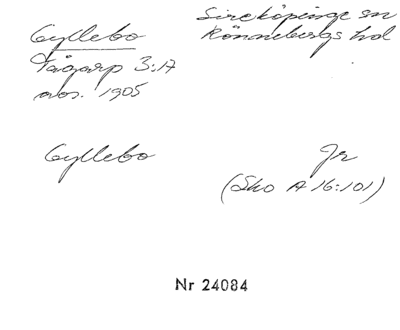 Gyllebo
Sireköpinge sn
Rönnebergs hd
Tågarp 3:17
avs. 1905
Gyllebo
Jr
(Sko A 16:101)
Nr 24084